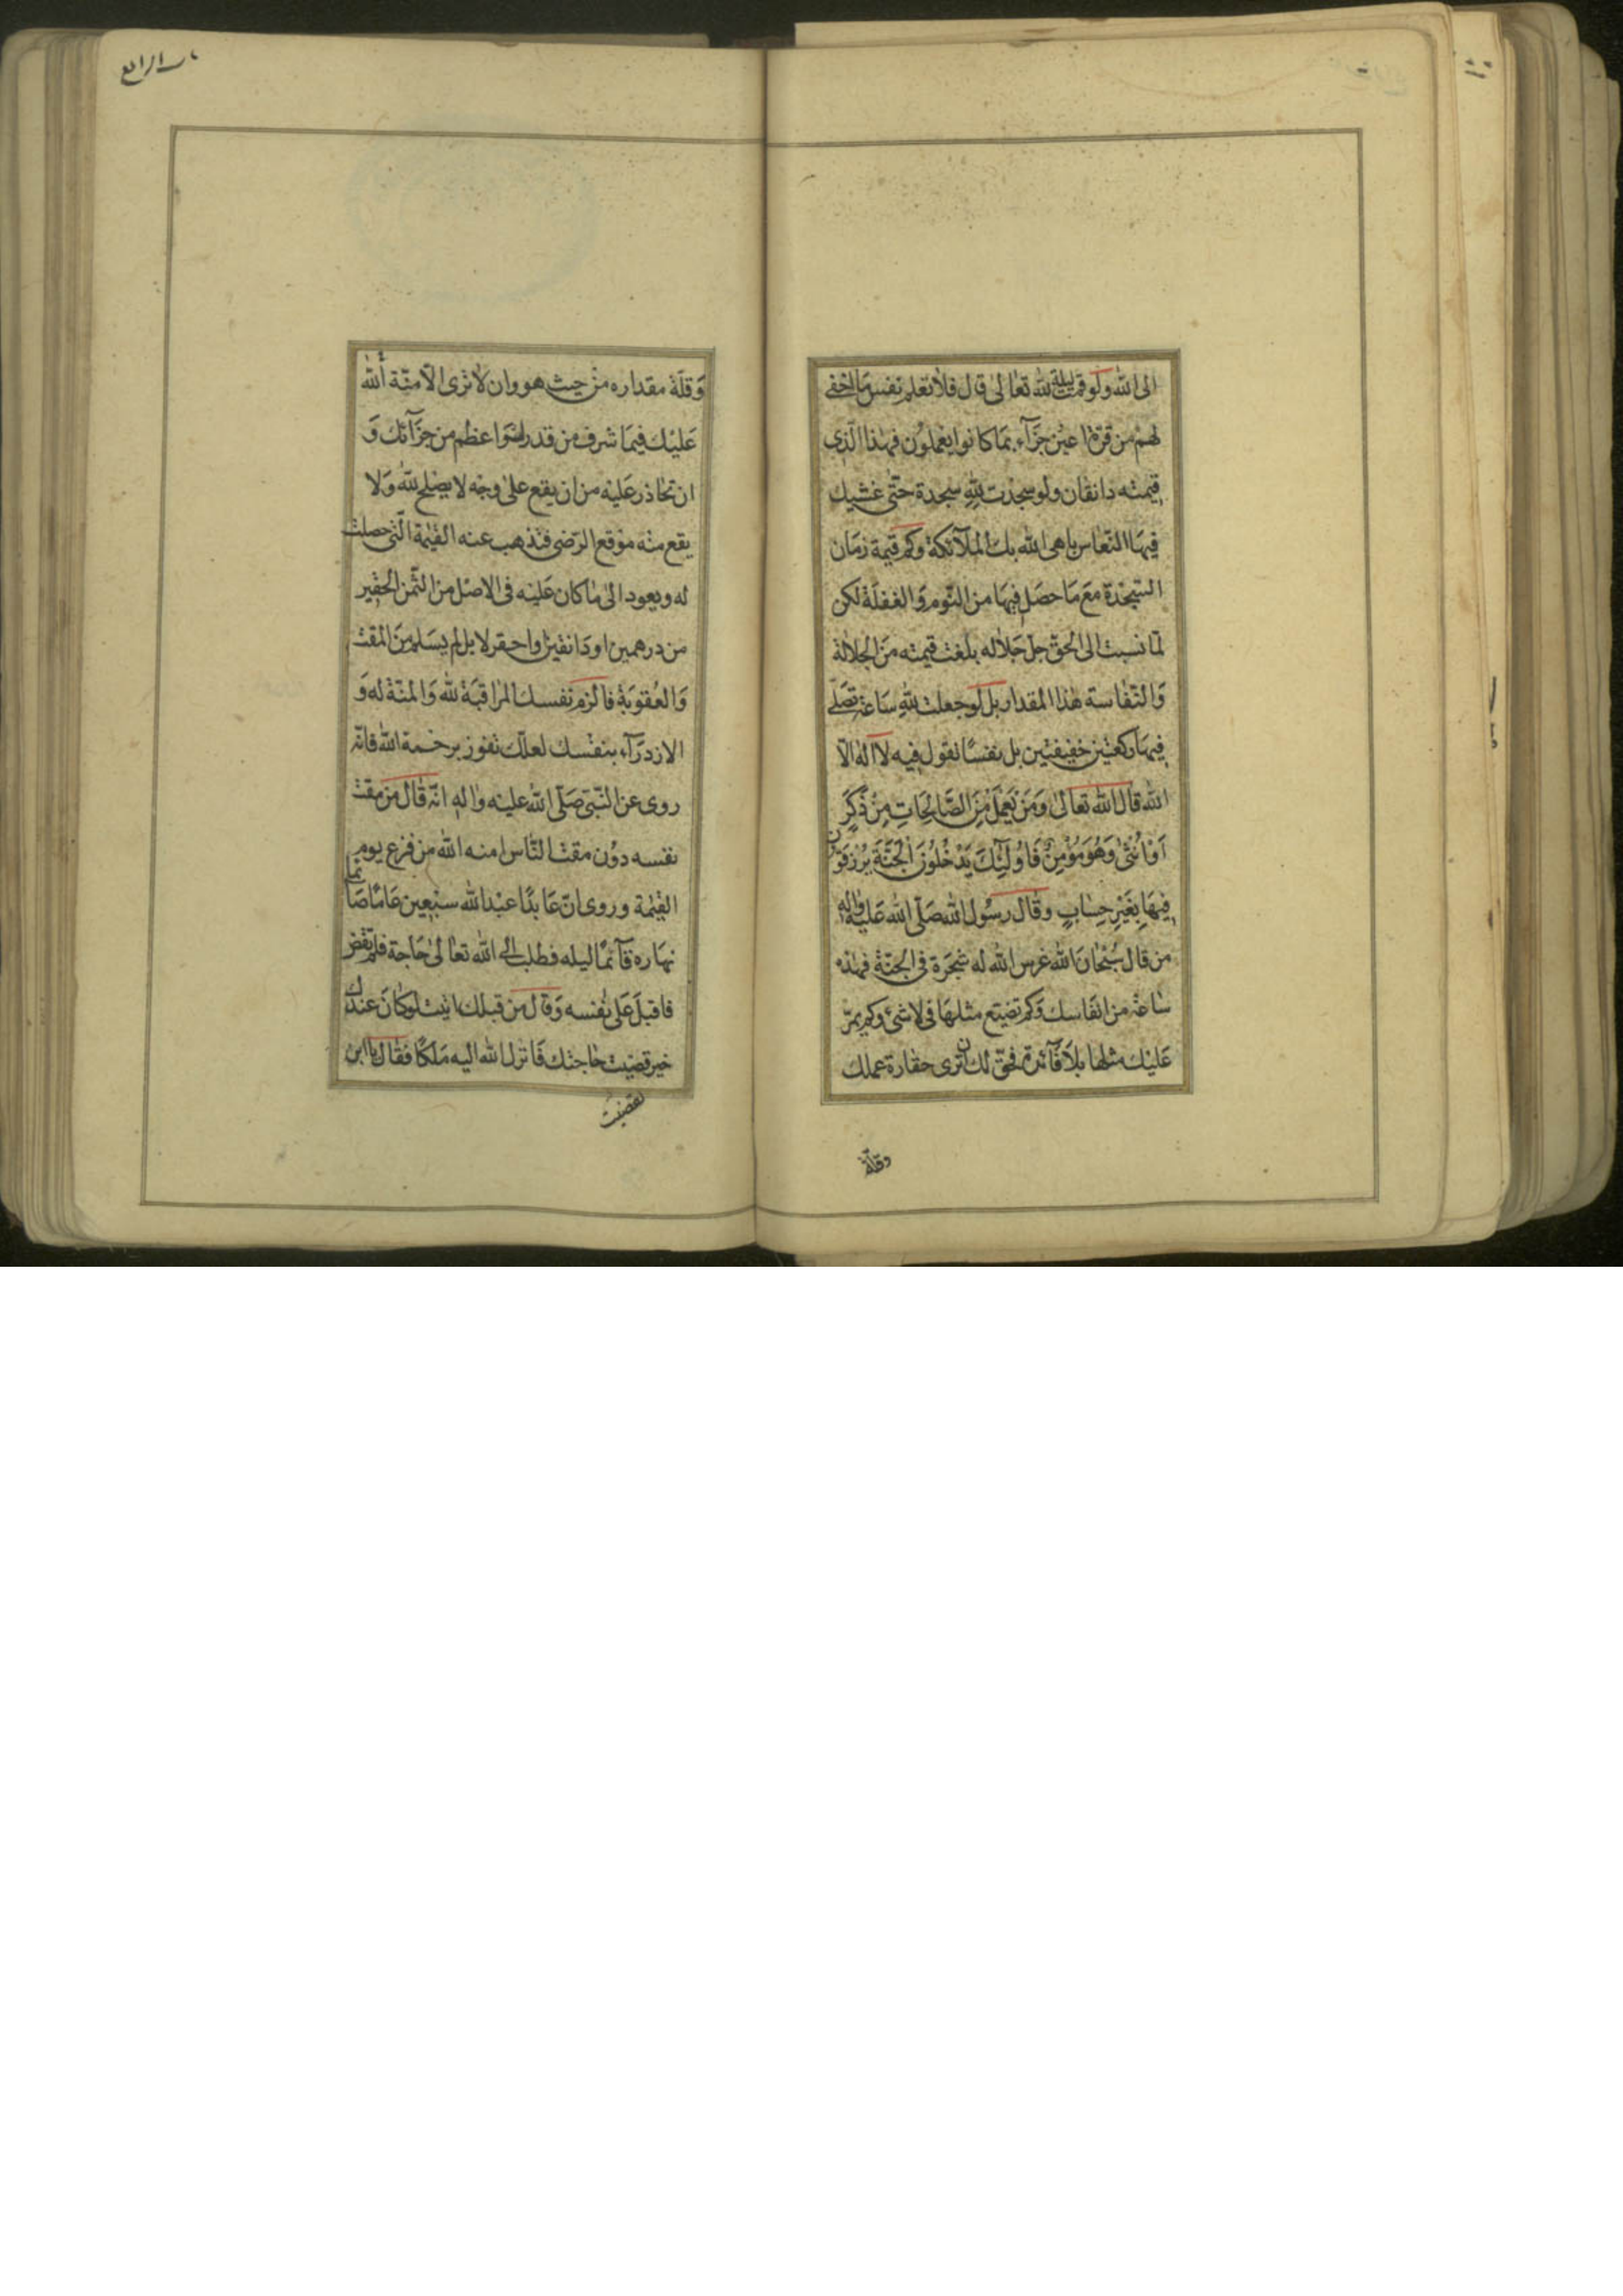 الى الله ولو قمت ليلة لله تعالى قال فلا تعلم نفس ما اخفى
لهم من قرة اعين جزآء بما كانوا يعملون فهذا الّذى
قيمته دانقان ولو سجدت لله سجدة حتّى غشيك
فيها النّعاس باهى الله بك الملآئكة وكم قيمة زمان
السّجدة مع ما حصل فيها من النّوم والغفلة لكن
لمّا نسبت الى الحقّ جلّ جلاله بلغت قيمته من الجلالة
والنّفاسة هذا المقدار بل لو جعلت لله ساعة تصلّى
فيها ركعتين خفيفتين بل نفسًا تقول فيه لا اله الّا
الله قال الله تعالى وَمَن يَعمَل مِنَ الصَّالِحَاتِ مِنْ ذَكَرٍ
اَوْ اُنْثىٰ وَهُوَ مُؤْمِنٌ فَاُولٰئِكَ يَدْخُلُونَ الْجَنَّةَ يُرْزَقُونَ
فِيهَا بِغَيْرِ حِسَابٍ وقال رسول الله صلّى الله عليه واله
من قال سُبْحَانَ الله غرس الله له شجرة فى الجنّة فهذه
ساعة من انفاسك وكم تضيّع مثلها فى لاشئ وكم يمرّ
عليك مثلها بلا فآئدة فحقّ لك ان ترى حقارة عملك
وقلّة
ب الرابع
وقلّة مقداره من حيث هو وان لا ترى الّا منّة الله
عليك فيما شرف من قدر واعظم من جزآئك و
ان تحاذر عليه من ان يقع على وجه لا يصلح لله ولا
يقع منه موقع الرّضى فتذهب عنه القيمة الّتى حصلت
له ويعود الى ما كان عليه فى الاصل من الثّمن الحقير
من درهمين او دانقين واحقر لا بل لم يسلم من المقت
والعقوبة فالزم نفسك المراقبة لله والمنّة له و
الازدرآء بنفسك لعلّك تفوز برحمة الله فانّه
روى عن النّبىّ صلّى الله عليه واله انّه قال من مقت
نفسه دون مقت النّاس امنه الله من فزع يوم
القيمة وروى انّ عابدًا عبد الله سبعين عامًا صآئما
نهاره قآئمًا ليله فطلب الى الله تعالى حاجة فلم تقض
فاقبل على نفسه وقال من قبلك اتيت لو كان عندك
خير قضيت حاجتك فانزل الله اليه ملكًا فقال يا ابن